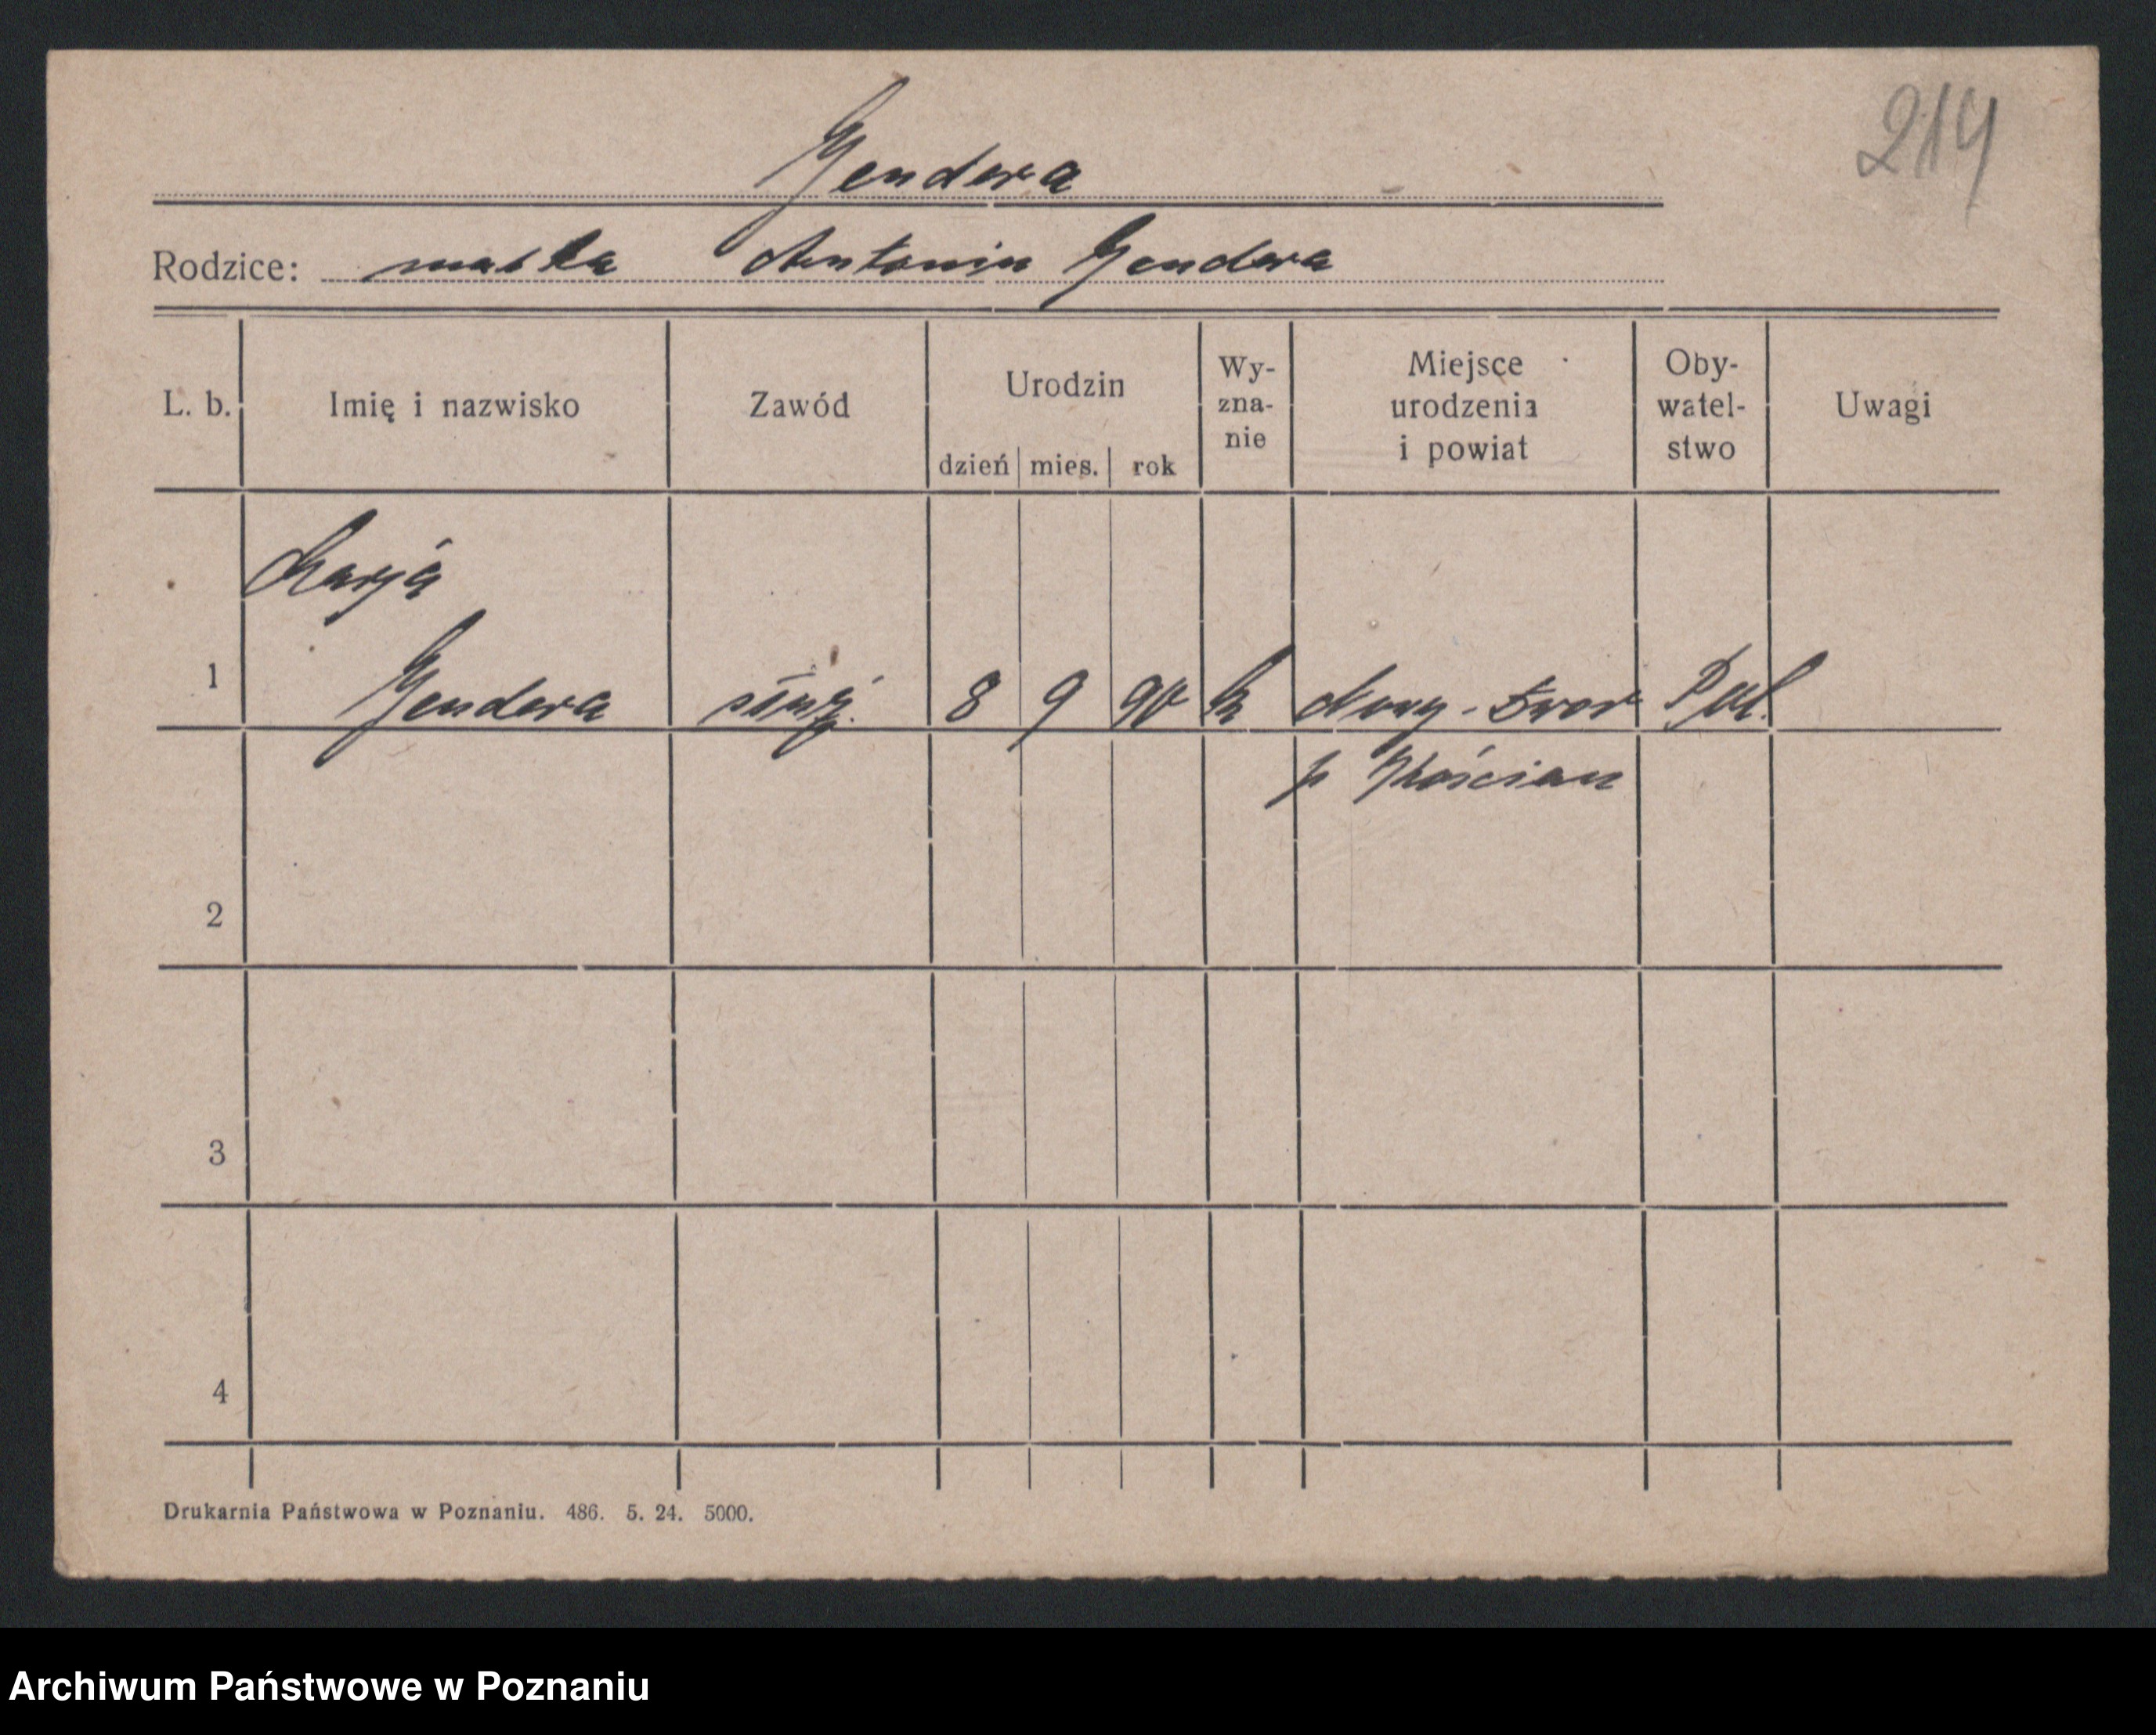 214
Gendera
Rodzice: matka Antonia Gendera
L. b. Imię i nazwisko Zawód Urodzin dzień mies. rok Wy-zna-nie Miejsce urodzenia i powiat Oby-watel-stwo Uwagi
Marja
1 Gendera służ. 8 9 90 k Nowy-Dwor Pol.
p Kościan
2
3
4
Drukarnia Państwowa w Poznaniu. 486. 5. 24. 5000.
Archiwum Państwowe w Poznaniu